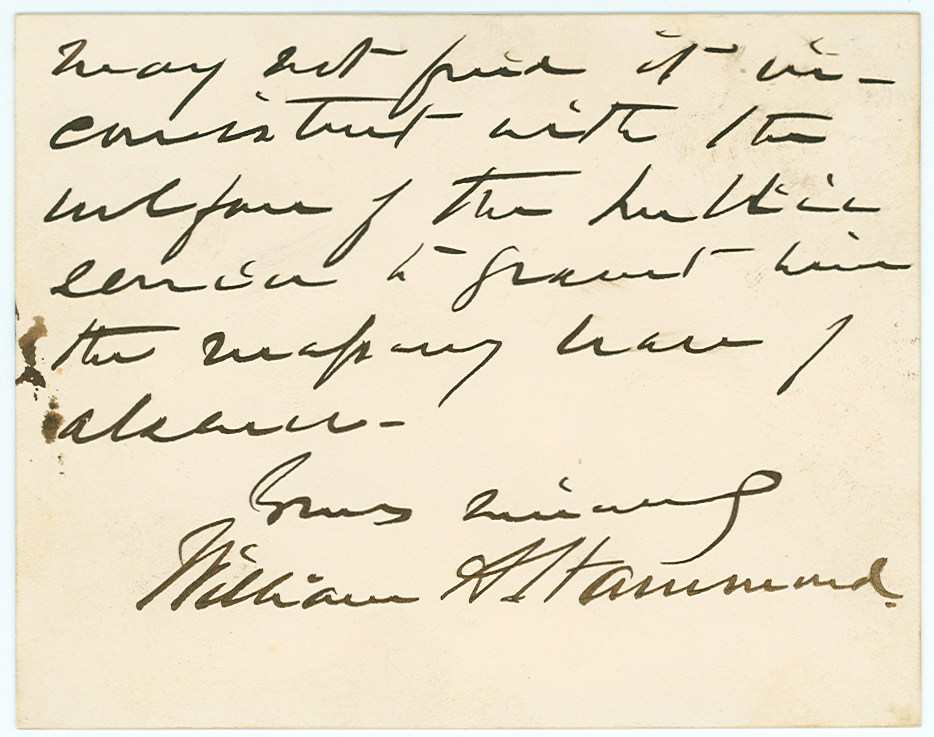 may not find it in-
consistent with the
welfare of the public
service to grant him
the necessary leave of
absence-
Yours sincerely
William A. Hammond.